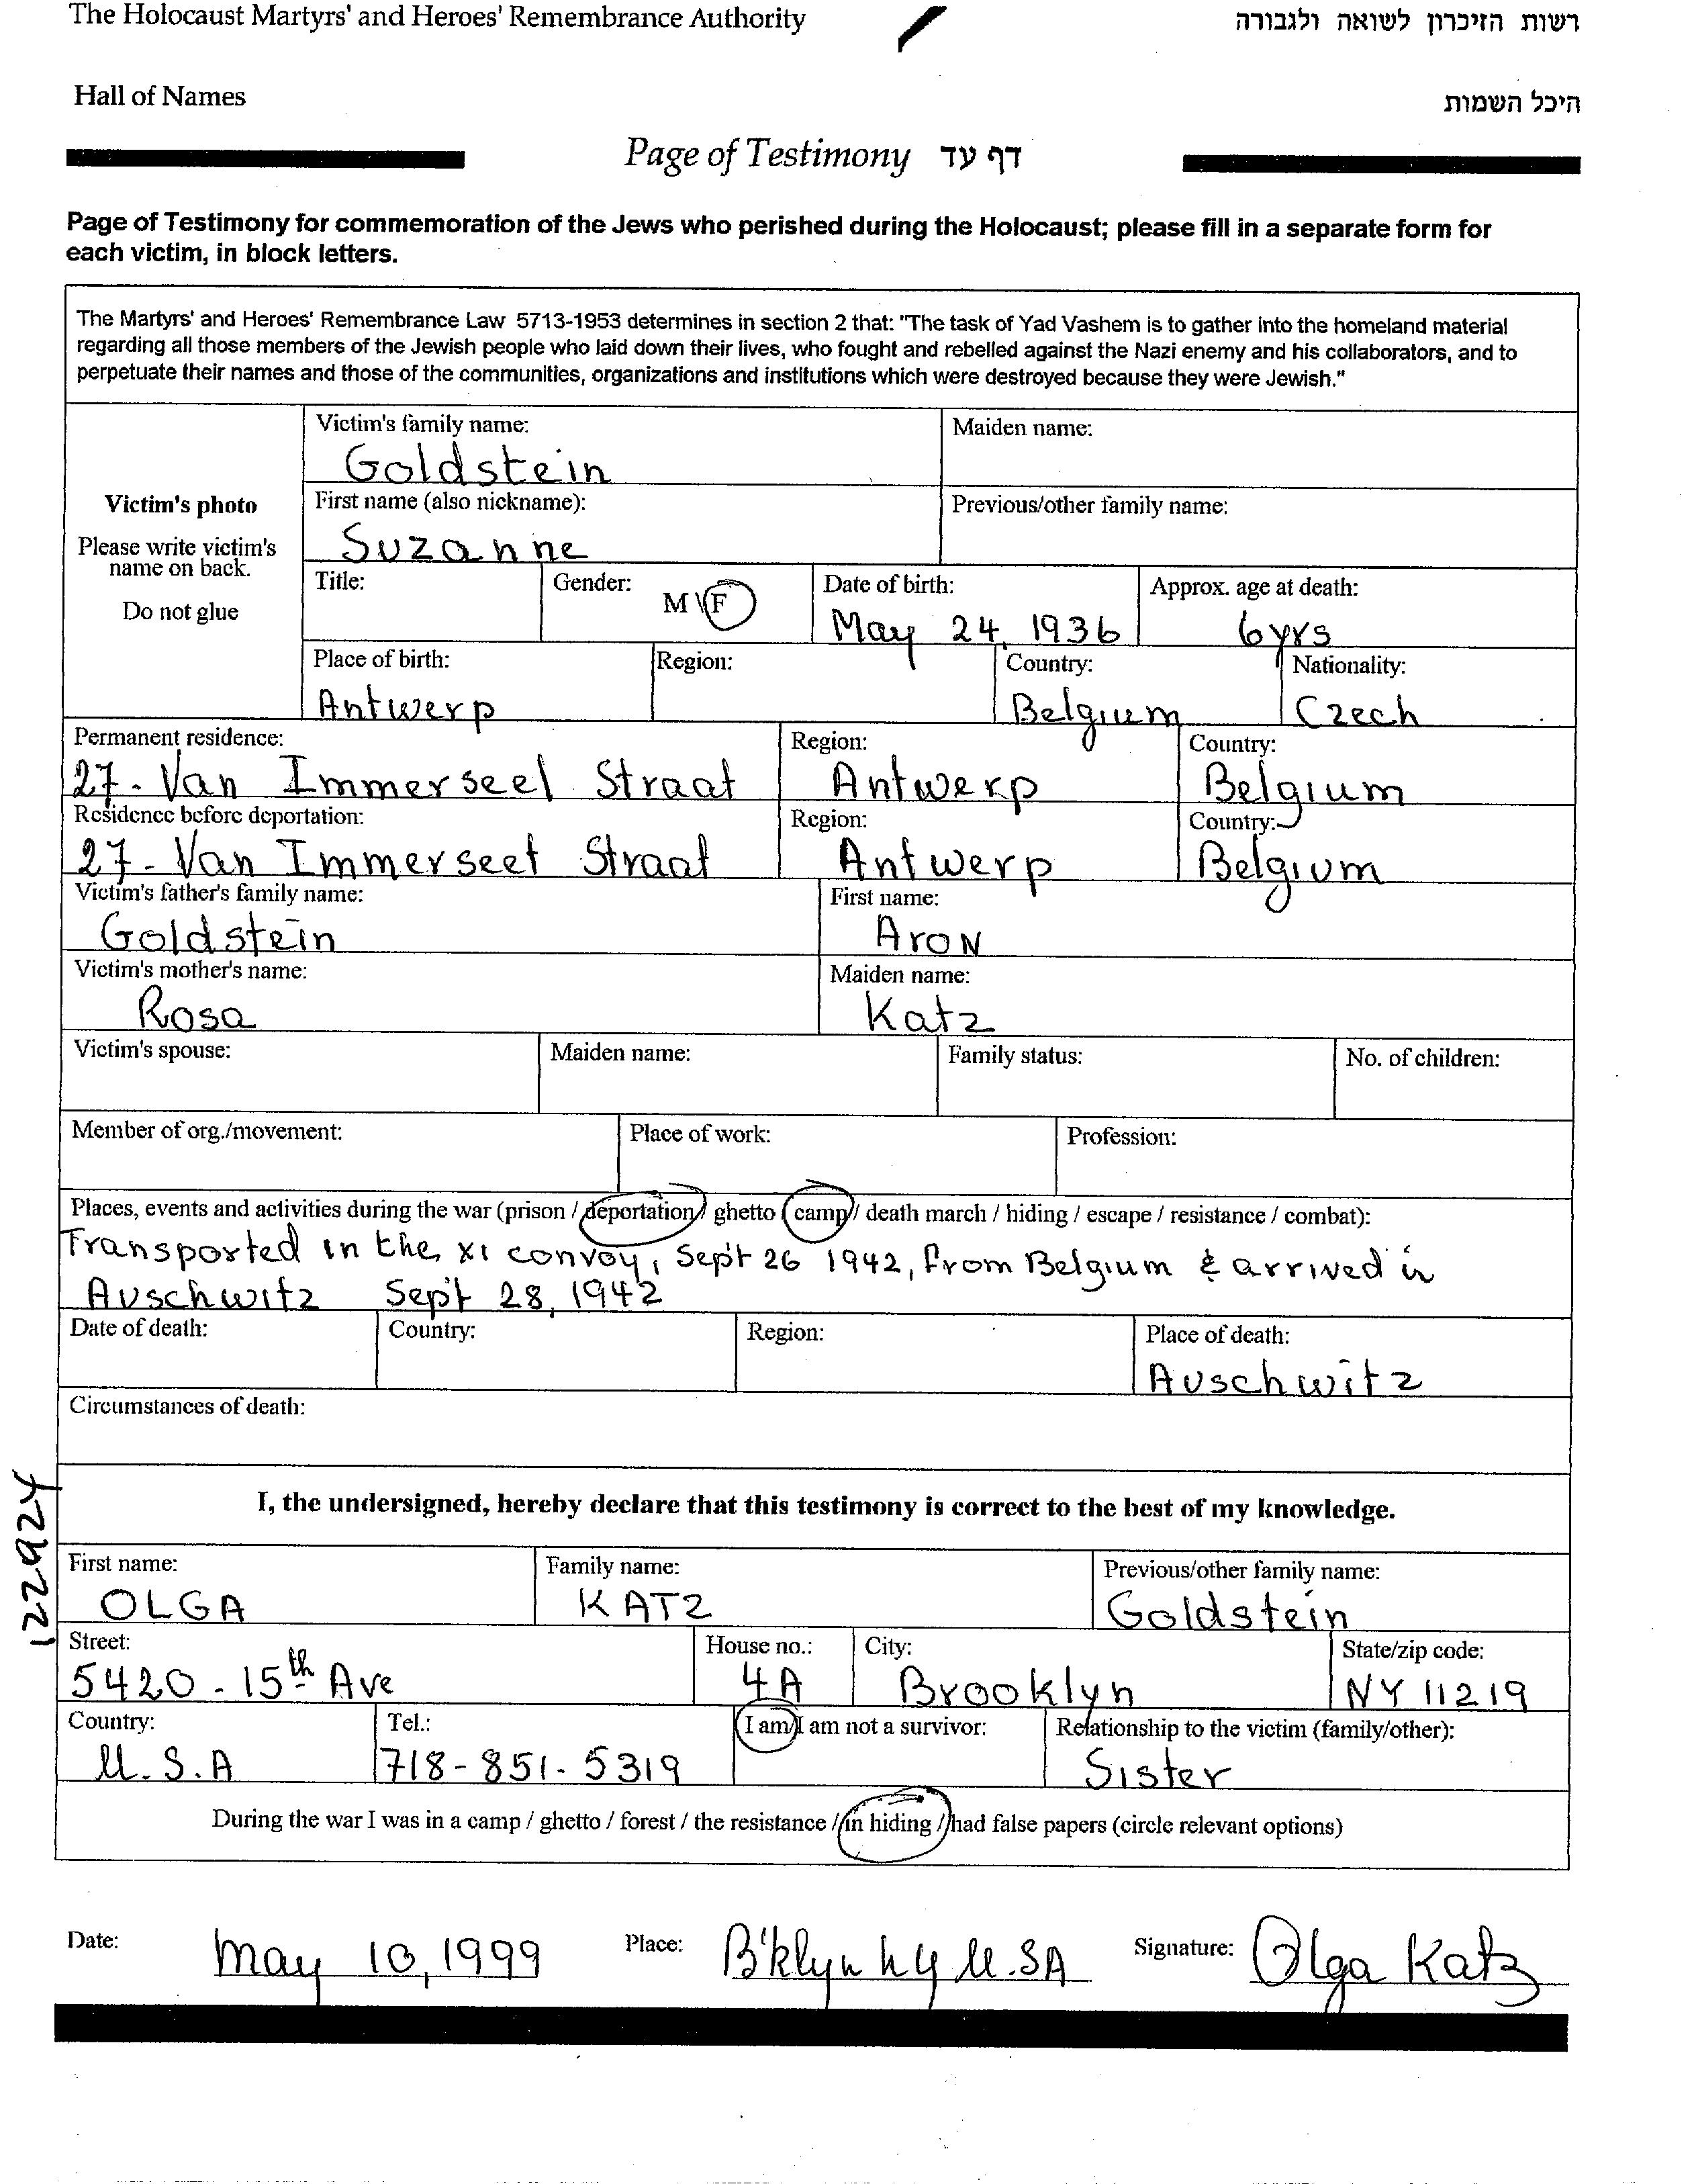 The Holocaust Martyrs' and Heroes' Remembrance Authority רשות הזיכרון לשואה ולגבורה
Hall of Names היכל השמות
Page of Testimony דף עד
Page of Testimony for commemoration of the Jews who perished during the Holocaust; please fill in a separate form for
each victim, in block letters.
The Martyrs' and Heroes' Remembrance Law 5713-1953 determines in section 2 that: "The task of Yad Vashem is to gather into the homeland material
regarding all those members of the Jewish people who laid down their lives, who fought and rebelled against the Nazi enemy and his collaborators, and to
perpetuate their names and those of the communities, organizations and institutions which were destroyed because they were Jewish."
Victim's photo
Please write victim's
name on back.
Do not glue
Victim's family name: Maiden name:
Goldstein
First name (also nickname): Previous/other family name:
Suzanne
Title: Gender: M \ F Date of birth: Approx. age at death:
May 24, 1936 6 yrs
Place of birth: Region: Country: Nationality:
Antwerp Belgium Czech
Permanent residence: Region: Country:
27 - Van Immerseel Straat Antwerp Belgium
Residence before deportation: Region: Country:
27 - Van Immerseet Straat Antwerp Belgium
Victim's father's family name: First name:
Goldstein Aron
Victim's mother's name: Maiden name:
Rosa Katz
Victim's spouse: Maiden name: Family status: No. of children:
Member of org./movement: Place of work: Profession:
Places, events and activities during the war (prison / deportation / ghetto / camp / death march / hiding / escape / resistance / combat):
Transported in the XI convoy, Sept 26 1942, from Belgium & arrived in
Auschwitz Sept 28, 1942
Date of death: Country: Region: Place of death:
Auschwitz
Circumstances of death:
I, the undersigned, hereby declare that this testimony is correct to the best of my knowledge.
First name: Family name: Previous/other family name:
OLGA KATZ Goldstein
Street: House no.: City: State/zip code:
5420 - 15th Ave 4A Brooklyn NY 11219
Country: Tel.: I am/I am not a survivor: Relationship to the victim (family/other):
U.S.A 718-851-5319 Sister
During the war I was in a camp / ghetto / forest / the resistance / in hiding / had false papers (circle relevant options)
Date: May 10, 1999 Place: B'klyn NY U.SA Signature: Olga Katz
122924